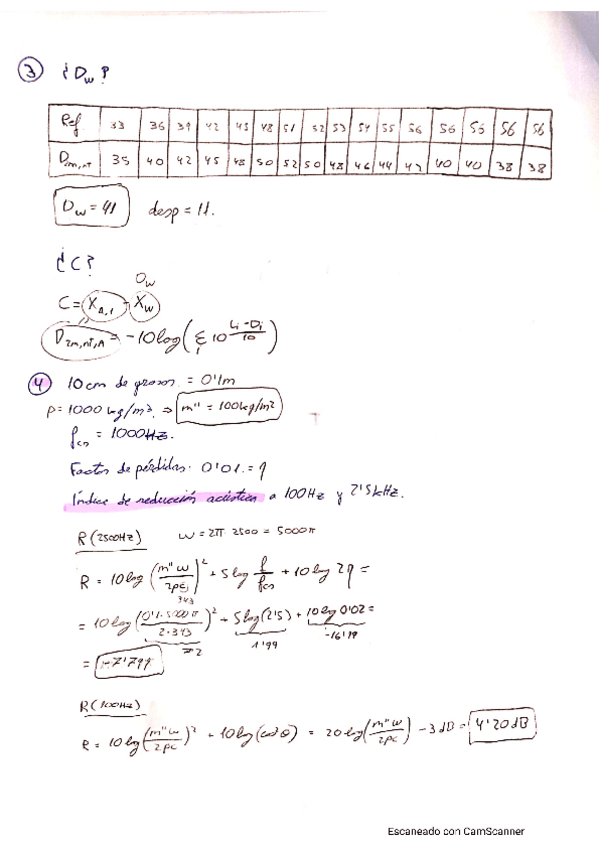 ③ ¿Dw?
Ref 33 36 39 42 45 48 51 52 53 54 55 56 56 56 56 56
D2m,nT 35 40 42 45 48 50 52 50 48 46 44 42 40 40 38 38
Dw = 41 desp = 11.
¿C?
Dw
C = XA,1 - Xw
D2m,nT,A = -10log(Σ 10^(Li-Di/10))
④ 10cm de grosor = 0'1m
ρ = 1000 kg/m³ ⇒ m" = 100kg/m²
fcs = 1000Hz.
Factor de pérdidas: 0'01 = η
Índice de reducción acústica a 100Hz y 2'5kHz.
R(2500Hz) ω = 2π 2500 = 5000π
R = 10log(m"ω/2ρc)² + 5log f/fcs + 10log 2η =
343
= 10log(0'1·5000π/2·343)² + 5log(2'5) + 10log 0'02 =
7'2 1'99 -16'99
= -7'799
R(100Hz)
R = 10log(m"ω/2ρc)² + 10log(cosθ) = 20log(m"ω/2ρc) - 3dB = 4'20dB
Escaneado con CamScanner